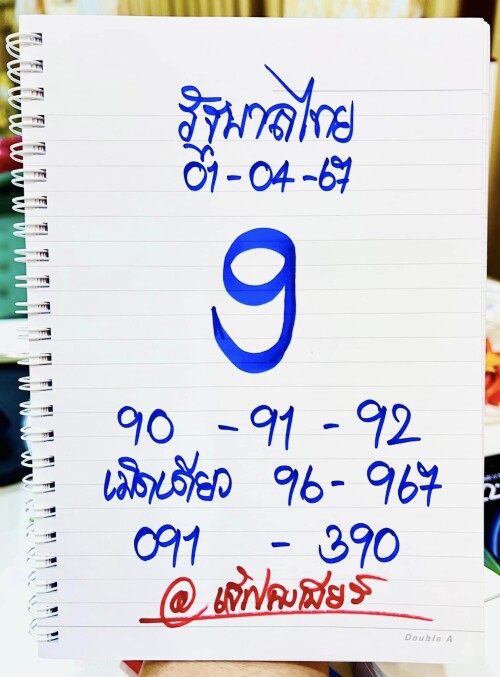 รัฐบาลไทย
01-04-67
9
90 - 91 - 92
เม็ดเดียว 96 - 967
091 - 390
@
Double A